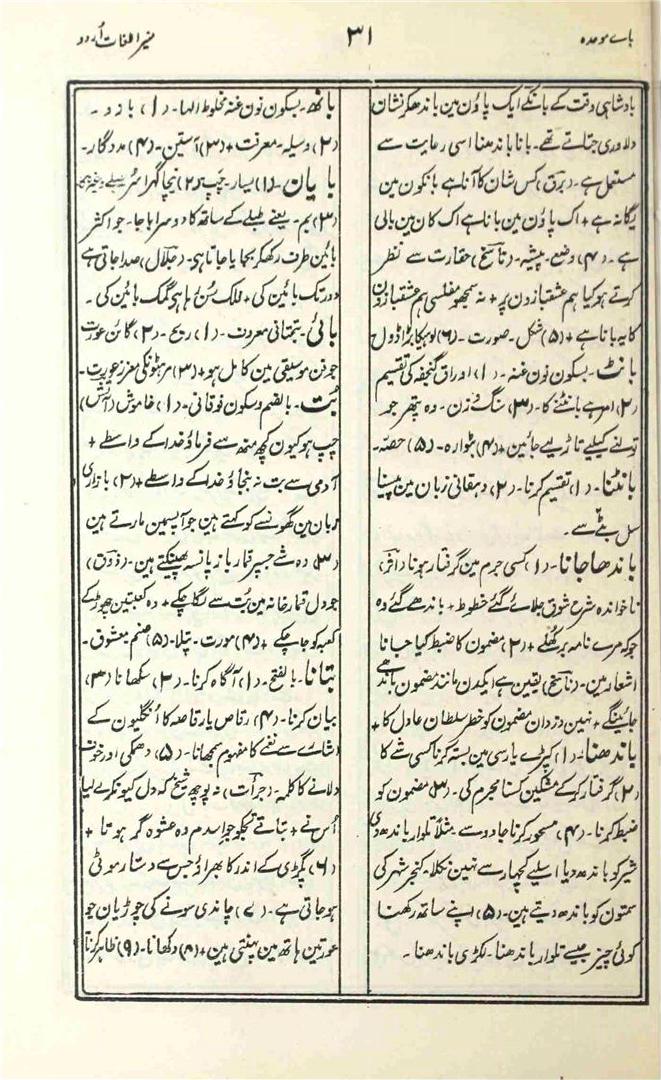 باے موحدہ
۳۱
منیر اللغات اُردو
بادشاہی وقت کے بانکے ایک پاؤن مین باندھکر نشان
دلاوری جتلاتے تھے۔ بانا باندھنا اسی رعایت سے
مستعمل ہے۔ (برق) کس شان کا آنا ہے بانکون مین
یگانہ ہے + اک پاؤن مین بانا ہے اک کان مین بالی
ہے۔ (۴) وضع۔ پیشہ۔ (ناسخ) حقارت سے نظر
کرتے ہو کیا ہم عشقبازون پر + نہ سمجھو مفلسی ہم عشقبازون
کا یہ بانا ہے + (۵) شکل۔ صورت۔ (۶) لوہیکا بڑا ڈول
بانٹ۔ بسکون نون غنہ۔ (۱) اوراق گنجفہ کی تقسیم
(۲) امر ہے بانٹنے کا۔ (۳) سنگ وزن۔ وہ پتھر جو
تولنے کیلیے تاڑ لیے جائین + (۴) بٹوارہ۔ (۵) حصّہ۔
بانٹنا۔ (۱) تقسیم کرنا۔ (۲) دہقانی زبان مین پیسنا
سل بٹے سے۔
باندھا جانا۔ (۱) کسی جرم مین گرفتار ہونا
ناخواندہ شرح شوق جلائے گئے خطوط + باندھے گئے وہ
جو کہ مرے نامہ بر کھلے + (۲) مضمون کا ضبط کیا جانا
اشعار مین۔ (ناسخ) یقین ہے ایکدن مانند مضمون باندھے
جائینگے + نہین دزدان مضمون کو خطر سلطان عادل کا +
باندھنا۔ (۱) کپڑے یا رسی مین بستہ کرنا کسی شے کا
(۲) گرفتار کر کے مشکین کسنا مجرم کی۔ (۳) مضمون کو
ضبط کرنا۔ (۴) مسحور کرنا جادو سے مثلاً تلوار باندھ دی
شیر کو باندھ دیا اسلیے کچھار سے نہین نکلا۔ کنجر شہر کی
سمتون کو باندھ دیتے ہین۔ (۵) اپنے ساتھ رکھنا
کوئی چیز جیسے تلوار باندھنا۔ لکڑی باندھنا۔
بانھ۔ بسکون نون غنہ مخلوط الہا۔ (۱) بازو۔
(۲) وسیلہ۔ معرفت + (۳) آستین۔ (۴) مددگار۔
بایان۔ (۱) یسار۔ چپ (۲) نیچا گہرا سُر طبلے وغیرہ کا
(۳) بم۔ یعنے طبلے کے ساتھ کا دوسرا باجا۔ جو اکثر
بائین طرف رکھکر بجایا جاتا ہی۔ (جلال) صدا جاتی ہے
دور تک بائین کی + فلک سُن رہا ہی گمک بائین کی۔
بائی۔ بتحتانی معروف۔ (۱) ریح۔ (۲) گائن عورت
جو فن موسیقی مین کامل ہو + (۳) مرہٹونکی معزز عورت
بُت۔ بالضم و سکون فوقانی۔ (۱) خاموش (آتش)
چپ ہو کیون کچھ منھ سے فرماؤ خدا کے واسطے +
آدمی سے بت نہ بنجاؤ خدا کے واسطے + (۲) بازاری
زبان مین گھونسے کو کہتے ہین جو آپسمین مارتے ہین
(۳) وہ شے جسپر قمار باز پانسہ پھینکتے ہین۔ (ذوق)
جو دل قمار خانہ مین بُت سے لگا چکے + وہ کعبتین چھوڑ کے
کعبہ کو جا چکے + (۴) مورت۔ پتلا۔ (۵) صنم معشوق۔
بتانا۔ بالفتح۔ (۱) آگاہ کرنا۔ (۲) سکھانا (۳)
بیان کرنا۔ (۴) رقاص یا رقاصہ کا اُنگلیون کے
اشارے سے نغمے کا مفہوم سمجھانا۔ (۵) دھمکی اور خوف
دلانے کا کلمہ۔ (جرأت) نہ پوچھ شیخ کہ دل کیونکر لے لیا
اُس نے + بتاتے تجکو جو اسدم وہ عشوہ گر ہوتا +
(۶) پگڑی کے اندر کا بھراؤ جس سے دستار موٹی
ہو جاتی ہے۔ (۷) چاندی سونے کی چوڑیان جو
عورتین ہاتھ مین پہنتی ہین + (۸) دکھانا۔ (۹) ظاہر کرنا